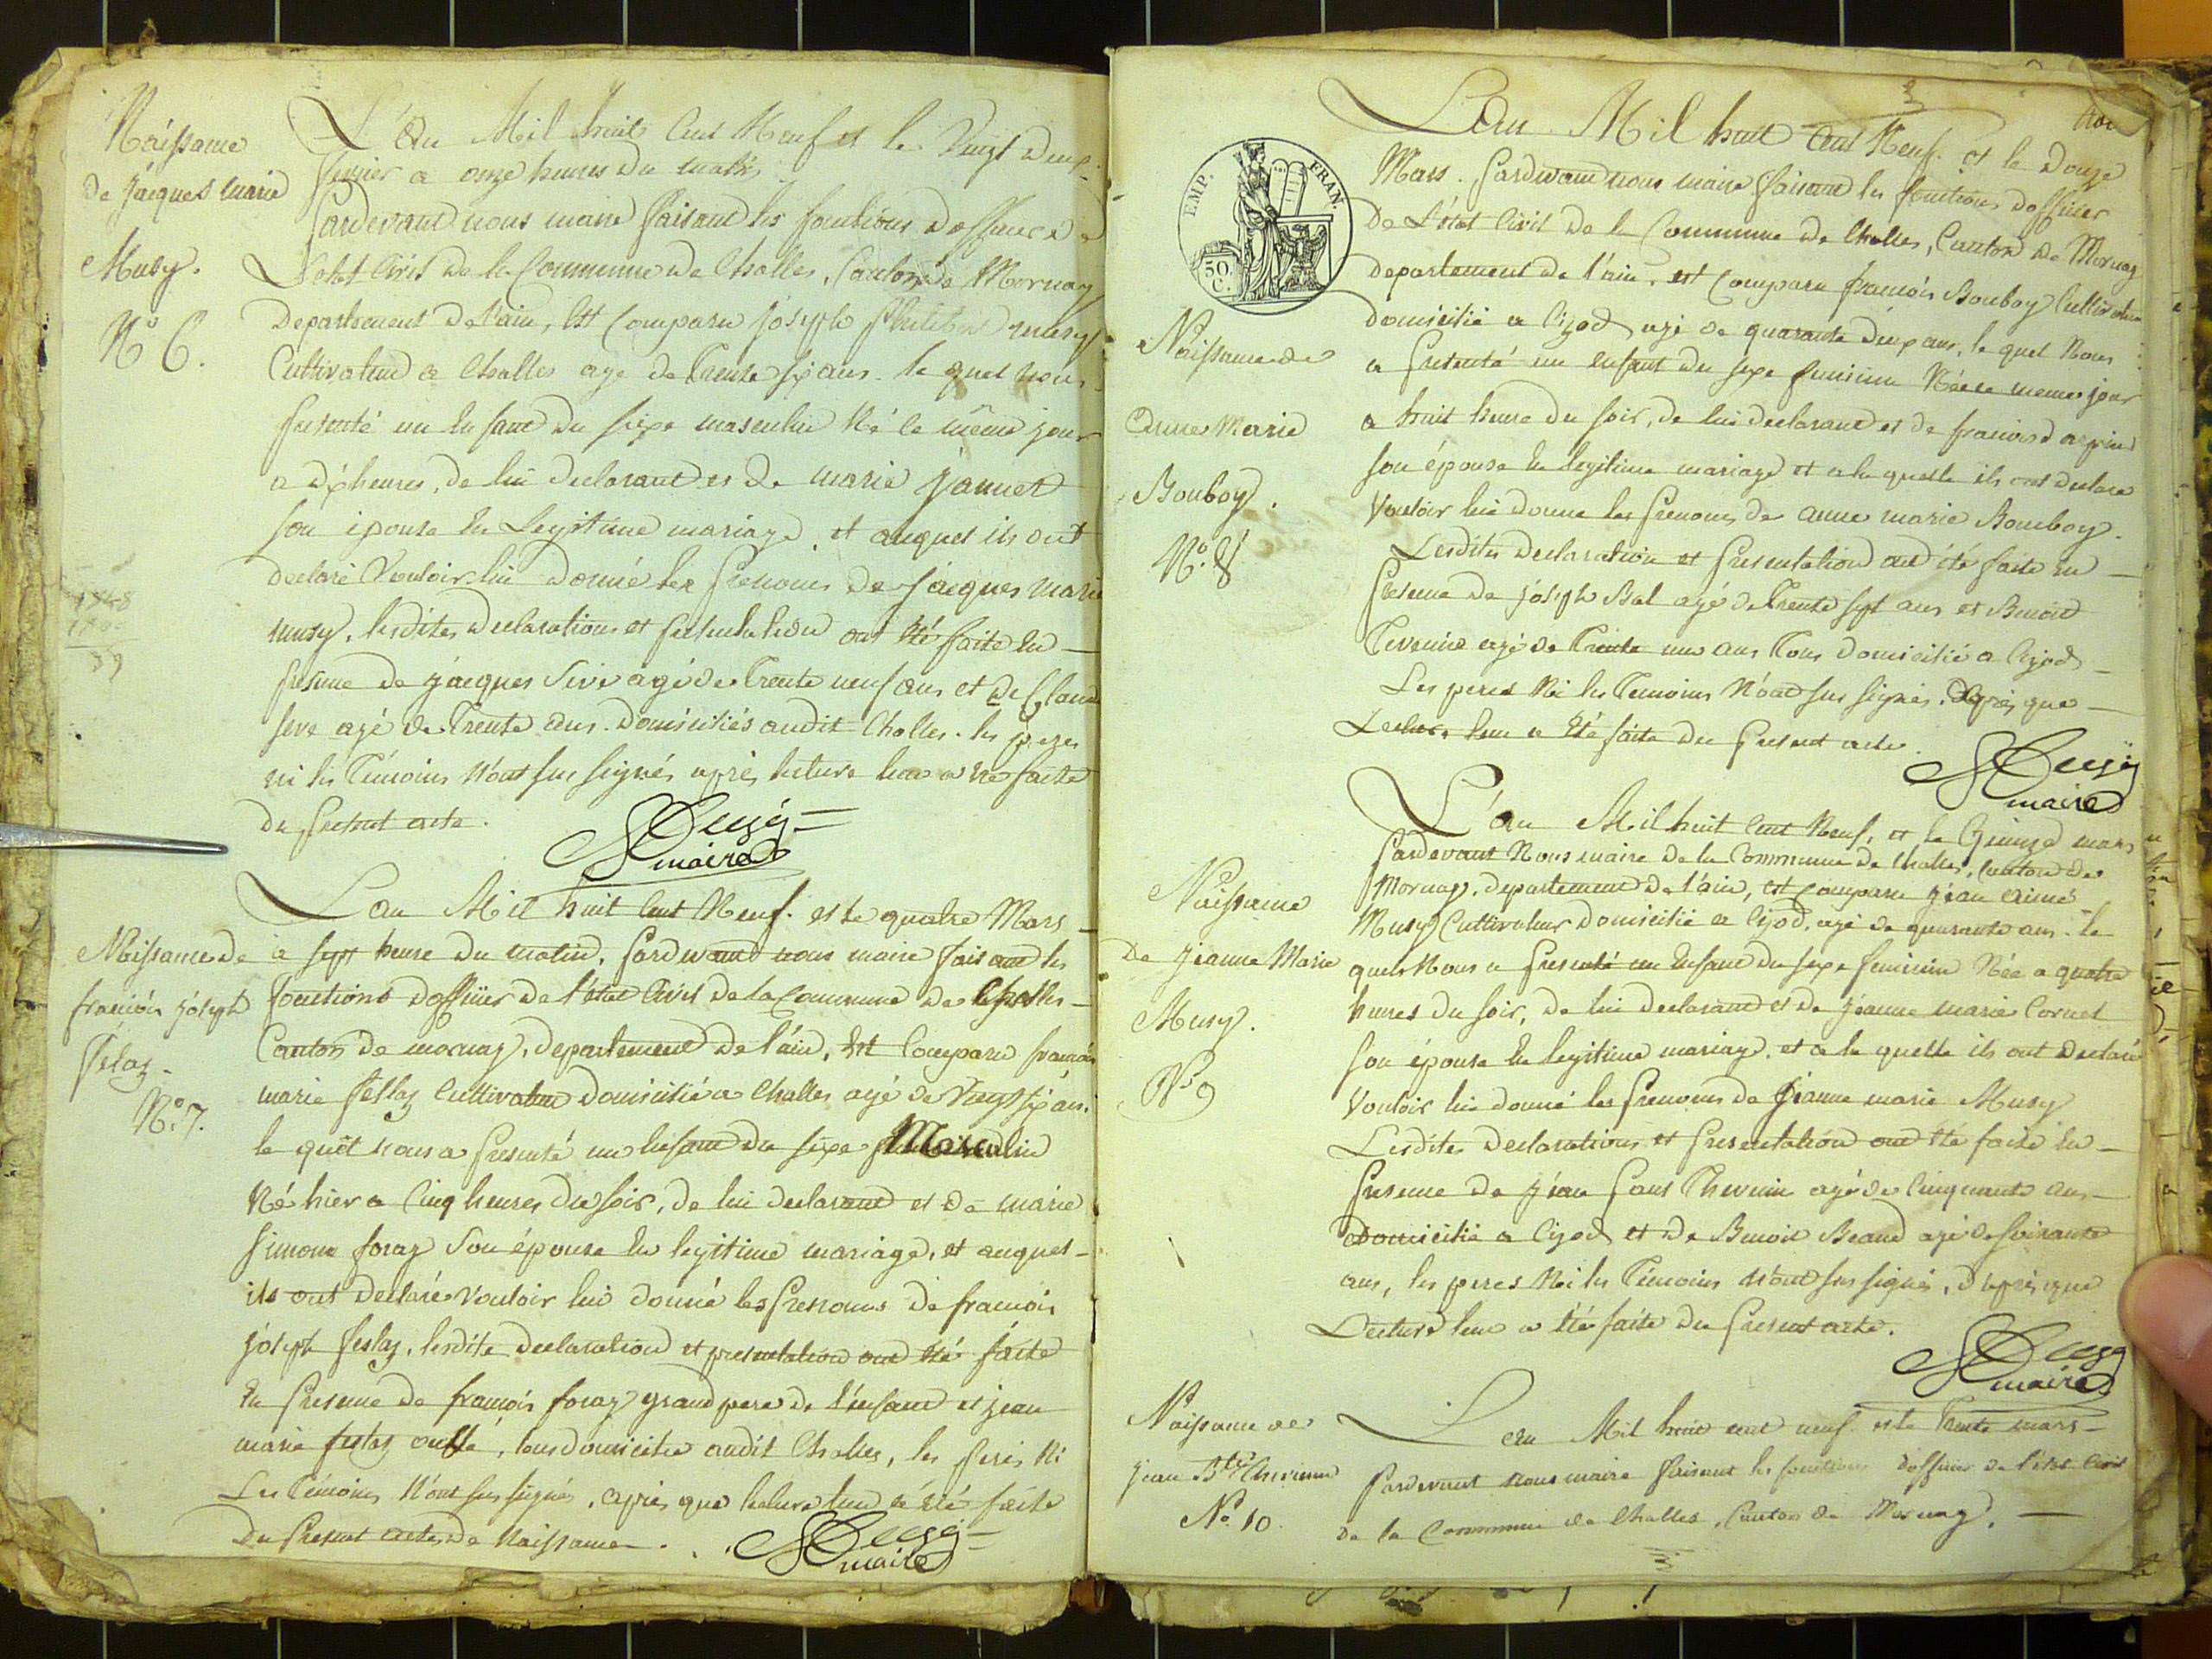 Naissance
de jacques marie
Musy.
N° 6.
L'an Mil huit Cent Neuf et le Vingt deux
fevrier a onze heures du matin
Pardevant nous maire faisant les fonctions d'officier de
L'etat Civil de la Commune de Challes, Canton de Mornay
Departement de l'ain, Est Comparu joseph Philibert musy
Cultivateur a Challes agé de Trente six ans. le quel nous
presenté un Enfant du sexe masculin Né le même jour
a dix heures, de lui declarant et de marie jannet
son épouse En Legitime mariage, et auquel ils ont
declaré Vouloir lui donné les prenoms de jacques marie
musy, lesdites declarations et presentation ont été faite En
presence de jacques Seve agé de Trente neuf ans et de Claude
seve agé de Trente ans. Domiciliés audit Challes. les peres
ni les Témoins N'ont sus signés après lecture leur a été faite
du present acte.
maire
Naissance de
francois joseph
Felaz.
N° 7.
L'an Mil huit Cent Neuf. et le quatre Mars
a sept heure du matin, pardevant nous maire faisant les
fonctions d'officier de l'état Civil de la Commune de Challes
Canton de mornay, departement de l'ain, Est Comparu francois
marie fellaz Cultivateur domicilié a Challes agé de Vingt six ans.
le quel nous a presenté un Enfant du sexe Masculin
Né hier a Cinq heures du soir, de lui declarant et de marie
Simone foray Son épouse En legitime mariage, et auquel
ils ont declaré Vouloir lui donné les prenoms de francois
joseph feslaz, lesdite declaration et presentation ont été faite
En presence de francois foray grand pere de l'enfant et jean
marie feslaz, tous domicilié audit Challes, les peres Ni
Les Témoins N'ont sus signés, après que lecture leur a été faite
Du present acte de Naissance.
maire
EMP. FRAN.
50. C.
Naissance de
Anne Marie
Bouboy.
N° 8
L'an Mil huit Cent Neuf. et le Douze
Mars. Pardevant nous maire faisant les fonctions d'officier
De L'état Civil De la Commune de Challes, Canton de Mornay
departement de l'ain, est Comparu francois Bouboy Cultivateur
domicilié a Cizod agé de quarante deux ans, le quel Nous
a presenté un enfant du sexe feminin Née ce meme jour
a huit heure du soir, de lui declarant et de
son épouse En legitime mariage et a la quelle ils ont declare
Vouloir lui donne les prenoms de anne marie Bouboy.
Lesdites declaration et presentation ont été faite En
presence de joseph Bal agé de Trente sept ans et Benoit
Tevenin agé de Trente un ans Tous domicilié a Cizod
Les peres Ni les Temoins N'ont sus signés. Après que
Lecture leur a Eté faite du present acte.
maire
Naissance
De jeanne Marie
Musy.
N° 9
L'an Mil huit Cent Neuf, et le Quinze mars
pardevant Nous maire de la Commune de Challes, Canton de
Mornay, departement de l'ain, est Comparu jean aimé
Musy Cultivateur domicilié a Cizod, agé de quarante ans. le
quel Nous a presenté un Enfant du sexe feminin Née a quatre
heures du soir, de lui declarant et de jeanne marie Cornet
son épouse En legitime mariage, et a la quelle ils ont declaré
Vouloir lui donné les prenoms de jeanne marie Musy
Lesdites declarations et presentation ont été faite En
presence de jean paul Thevenin agé de Cinquante ans
domicilié a Cizod et de Benoit Beaud agé de soixante
ans, les peres Ni les Témoins N'ont sus signés, d'après que
Lecture leur a été faite du present acte.
maire
Naissance de
jean Bte Thevenin
N° 10.
L'an Mil huit cent neuf et le Trente mars
pardevant nous maire faisant les fonctions d'officier de l'état Civil
de la Commune de Challes, Canton de Mornay.